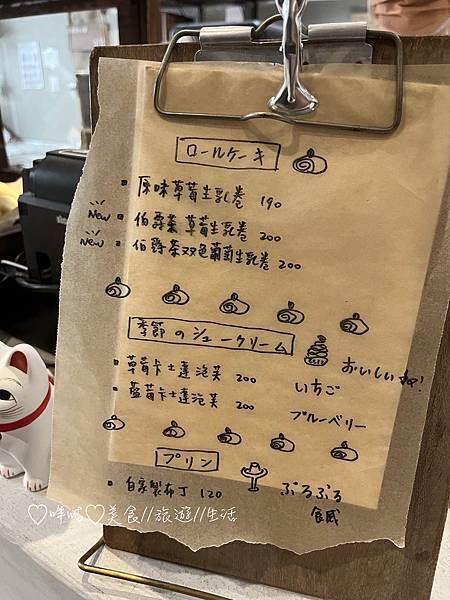 ロールケーキ
原味草莓生乳卷 190
New 伯爵茶 草莓生乳卷 200
New 伯爵茶双色葡萄生乳卷 200
季節のシュークリーム
草莓卡士達泡芙 200 いちご おいしいね!
藍莓卡士達泡芙 200 ブルーベリー
プリン
自家製布丁 120 ぷるぷる
食感
♡哞哞♡美食//旅遊//生活